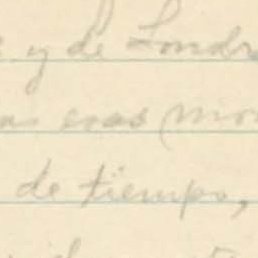 y de Londr
esas mon
de tiempo,